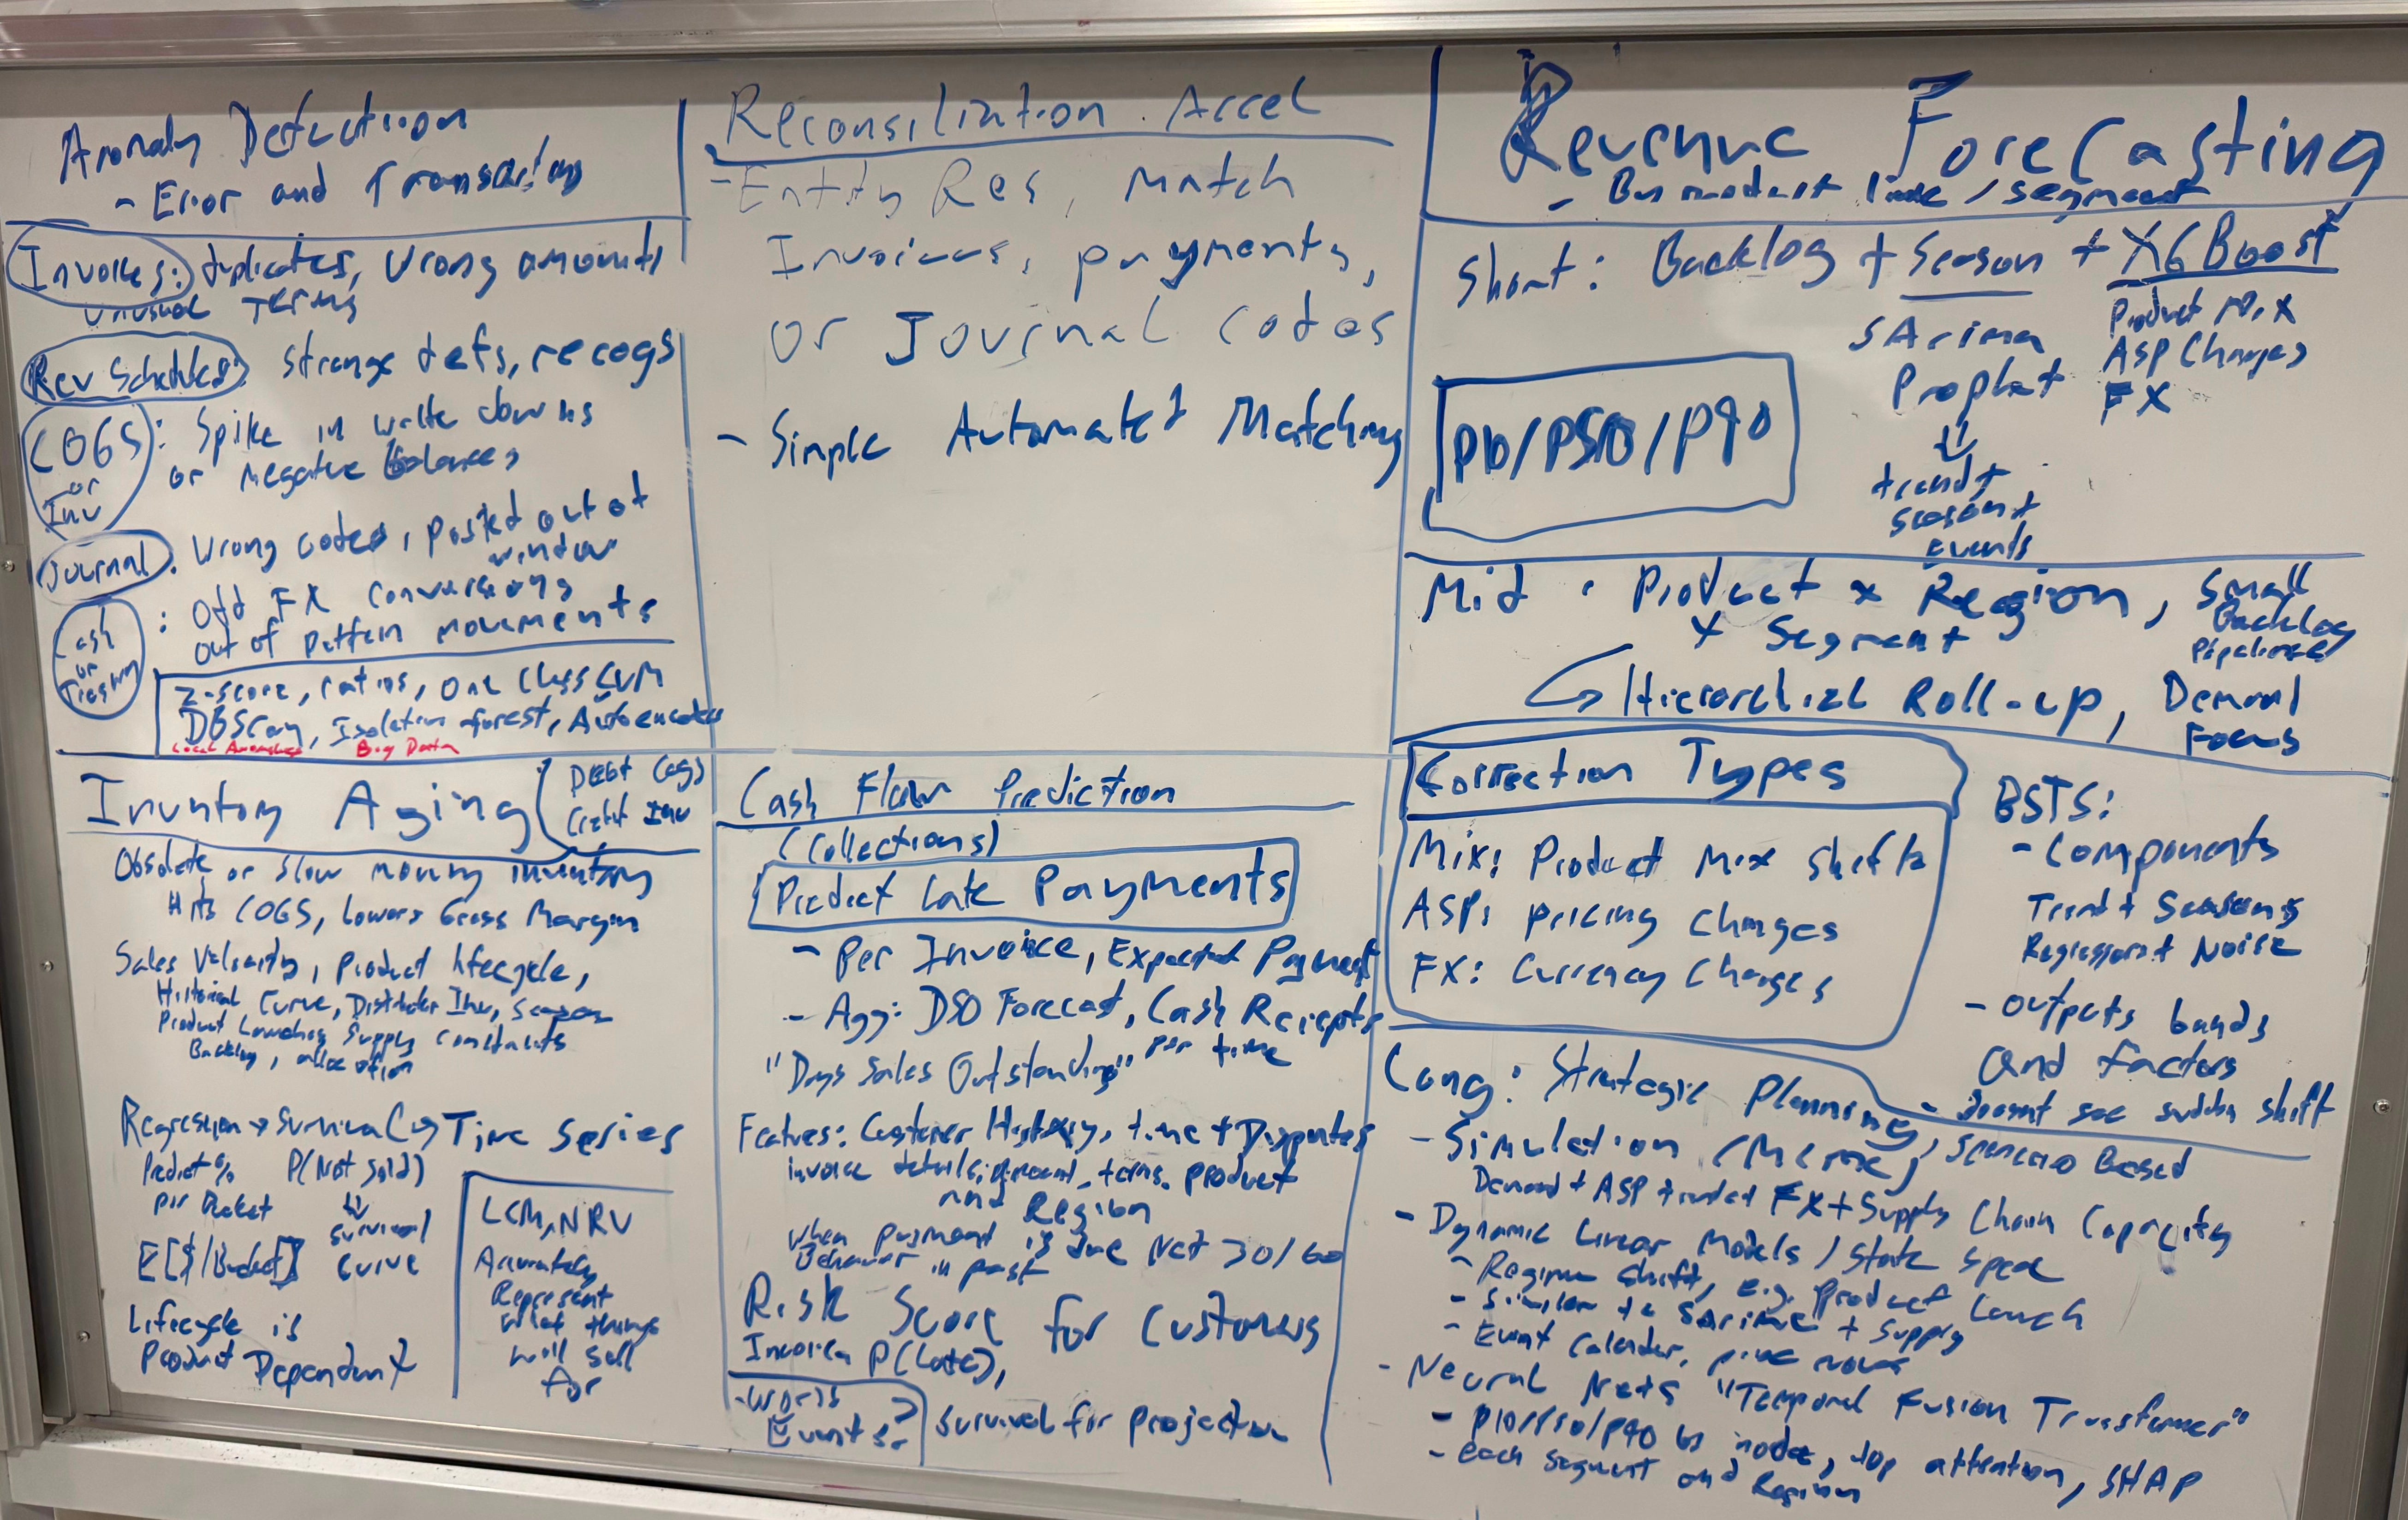 Anomaly Detection
- Error and Transactions
Invoices: duplicates, wrong amounts
unusual terms
Rev Schedules: strange defs, recogs
COGS or Inv: Spike in write downs
or negative balances
Journal: Wrong codes, posted out of
window
Cash or Treasury: Odd FX conversions
out of pattern movements
Z-score, ratios, One Class SVM
DBScan, Isolation forest, Autoencoder
Local Anomalies Big Data
Reconsiliation Accel
- Entity Res, Match
Invoices, payments,
or Journal codes
- Simple Automated Matching
Revenue Forecasting
- product line / segment
Short: Backlog + Season + XGBoost
SArima
Prophet
trend +
season +
Events
Product Mix
ASP Changes
FX
P10/P50/P90
Mid: Product x Region, Small
x Segment
Backlog
Pipelines
Hierarchial Roll-up, Demand
Focus
Correction Types
Mix: Product Mix shifts
ASP: pricing changes
FX: Currency Changes
BSTS:
- Components
Trend + Seasons
Regressors + Noise
- Outputs bands
and factors
- Doesnt see sudden shift
Long: Strategic Planning, Scenario Based
- Simulation (MCMC)
Demand + ASP trends + FX + Supply Chain Capacity
- Dynamic Linear Models / State Space
- Regime shift, e.g. Product Launch
- Similar to SArima + Supply
- Event Calendar,
- Neural Nets "Temporal Fusion Transformer"
- P10/P50/P90 by node, top attention, SHAP
- each segment and Region
Inventory Aging
Debt Cogs
Credit Inv
Obsolete or slow moving inventory
Hits COGS, Lowers Gross Margin
Sales Velocity, Product lifecycle,
Historical Curve, Distributer Inv, Season
Product Launches, Supply constraints
Backlog, allocation
Regression → Survival → Time Series
Predict %
per Bucket
P(Not Sold)
survival
curve
E[$/Bucket]
Lifecycle is
Product Dependent
LCM, NRV
Accurately
Represent
what things
will sell
for
Cash Flow Prediction
(Collections)
Predict Late Payments
- Per Invoice, Expected Payment
- Agg: DSO Forecast, Cash Reciepts
per time
"Days Sales Outstanding"
Features: Customer History, time + Disputes
invoice details, amount, terms, product
and Region
When payment is due Net 30/60
Behavior in past
Risk Score for Customers
Invoice P(Late),
- World
Events?
Survival for projection